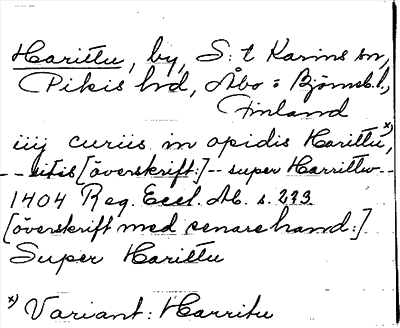 Harittu, by, S:t Karins sn,
Pikis hd, Åbo o Björneb. l.,
Finland
iiij curiis in opidis Harittu x),
-- sitis [överskrift:] -- super Harrittu --
1404 Reg. Eccl. Ab. s. 233
[överskrift med senare hand:]
Super Harittu
x) Variant: Harritu